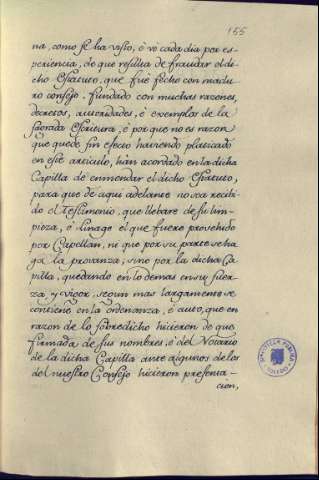 155
na, como se ha visto, è vè cada dia por es-
periencia, de que resulta de fraudar el di-
cho Estatuto, que fuè fecho con madu-
ro consejo, fundado con muchas razones,
decretos, autoridades, è exemplos de la
sagrada escritura, è por que no es razon
que quede sin efecto haviendo platicado
en este articulo, hàn acordado en la dicha
Capilla de enmendar el dicho Estatuto,
para que de aqui adelante no sea recibi-
do el Testimonio, que llebare de su lim-
pieza, è linage el que fuere provehido
por Capellan, ni que por su parte se ha-
ga la provanza, sino por la dicha Ca-
pilla, quedando en lo demas en su fuer-
za, y vigor, segun mas largamente se
contiene en la ordenanza, è auto, que en
razon de lo sobredicho hicieron de que
firmada de sus nombres, è del Notario
de la dicha Capilla ante algunos de los
del nuestro Consejo hicieron presenta-
cion,
BIBLIOTECA PUBLICA
TOLEDO